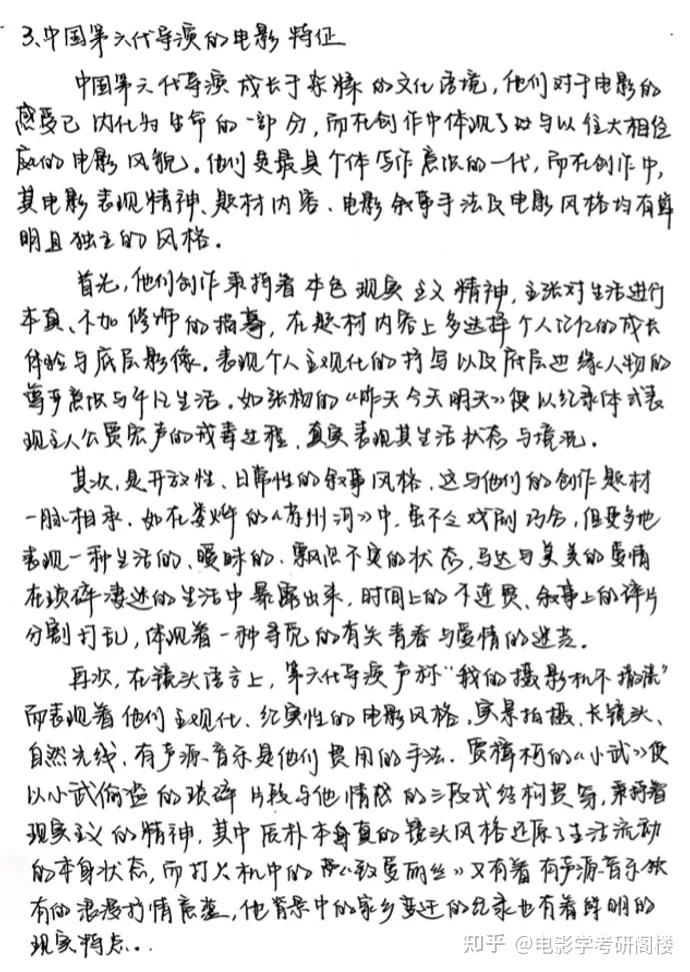 3、中国第六代导演的电影特征
中国第六代导演成长于杂糅的文化语境，他们对于电影的
感受已内化为生命的一部分，而在创作中体现了对与以往大相径
庭的电影风貌。他们是最具个体写作意识的一代，而在创作中，
其电影表现精神、题材内容、电影叙事手法及电影风格均有鲜
明且独立的风格。
首先，他们创作秉持着本色现实主义精神，主张对生活进行
本真、不加修饰的描摹，在题材内容上多选择个人记忆的成长
体验与底层影像。表现个人主观化的抒写以及底层边缘人物的
意识与平凡生活。如张杨的《昨天今天明天》便以纪录体式表
现主人公贾宏声的戒毒过程，真实表现其生活状态与境况。
其次，是开放性、日常性的叙事风格，这与他们的创作题材
一脉相承。如在娄烨的《苏州河》中，虽不乏戏剧巧合，但更多地
表现一种生活的、暧昧的、飘忽不定的状态，马达与美美的爱情
在琐碎凄迷的生活中暴露出来，时间上的不连贯、叙事上的碎片
分割打乱，体现着一种寻觅的有关青春与爱情的迷茫。
再次，在镜头语言上，第六代导演声称“我的摄影机不撒谎”
而表现着他们主观化、纪实性的电影风格，实景拍摄、长镜头、
自然光线、有声源音乐是他们惯用的手法。贾樟柯的《小武》便
以小武偷盗的琐碎片段与他情感的三段式结构贯穿，秉持着
现实主义的精神，其中质朴本真的镜头风格还原了生活流动
的本身状态，而打火机中的《致爱丽丝》又有着有声源音乐独
有的浪漫抒情意蕴，他背景中的家乡变迁的纪录也有着鲜明的
现实特点。
知乎 @电影学考研阁楼